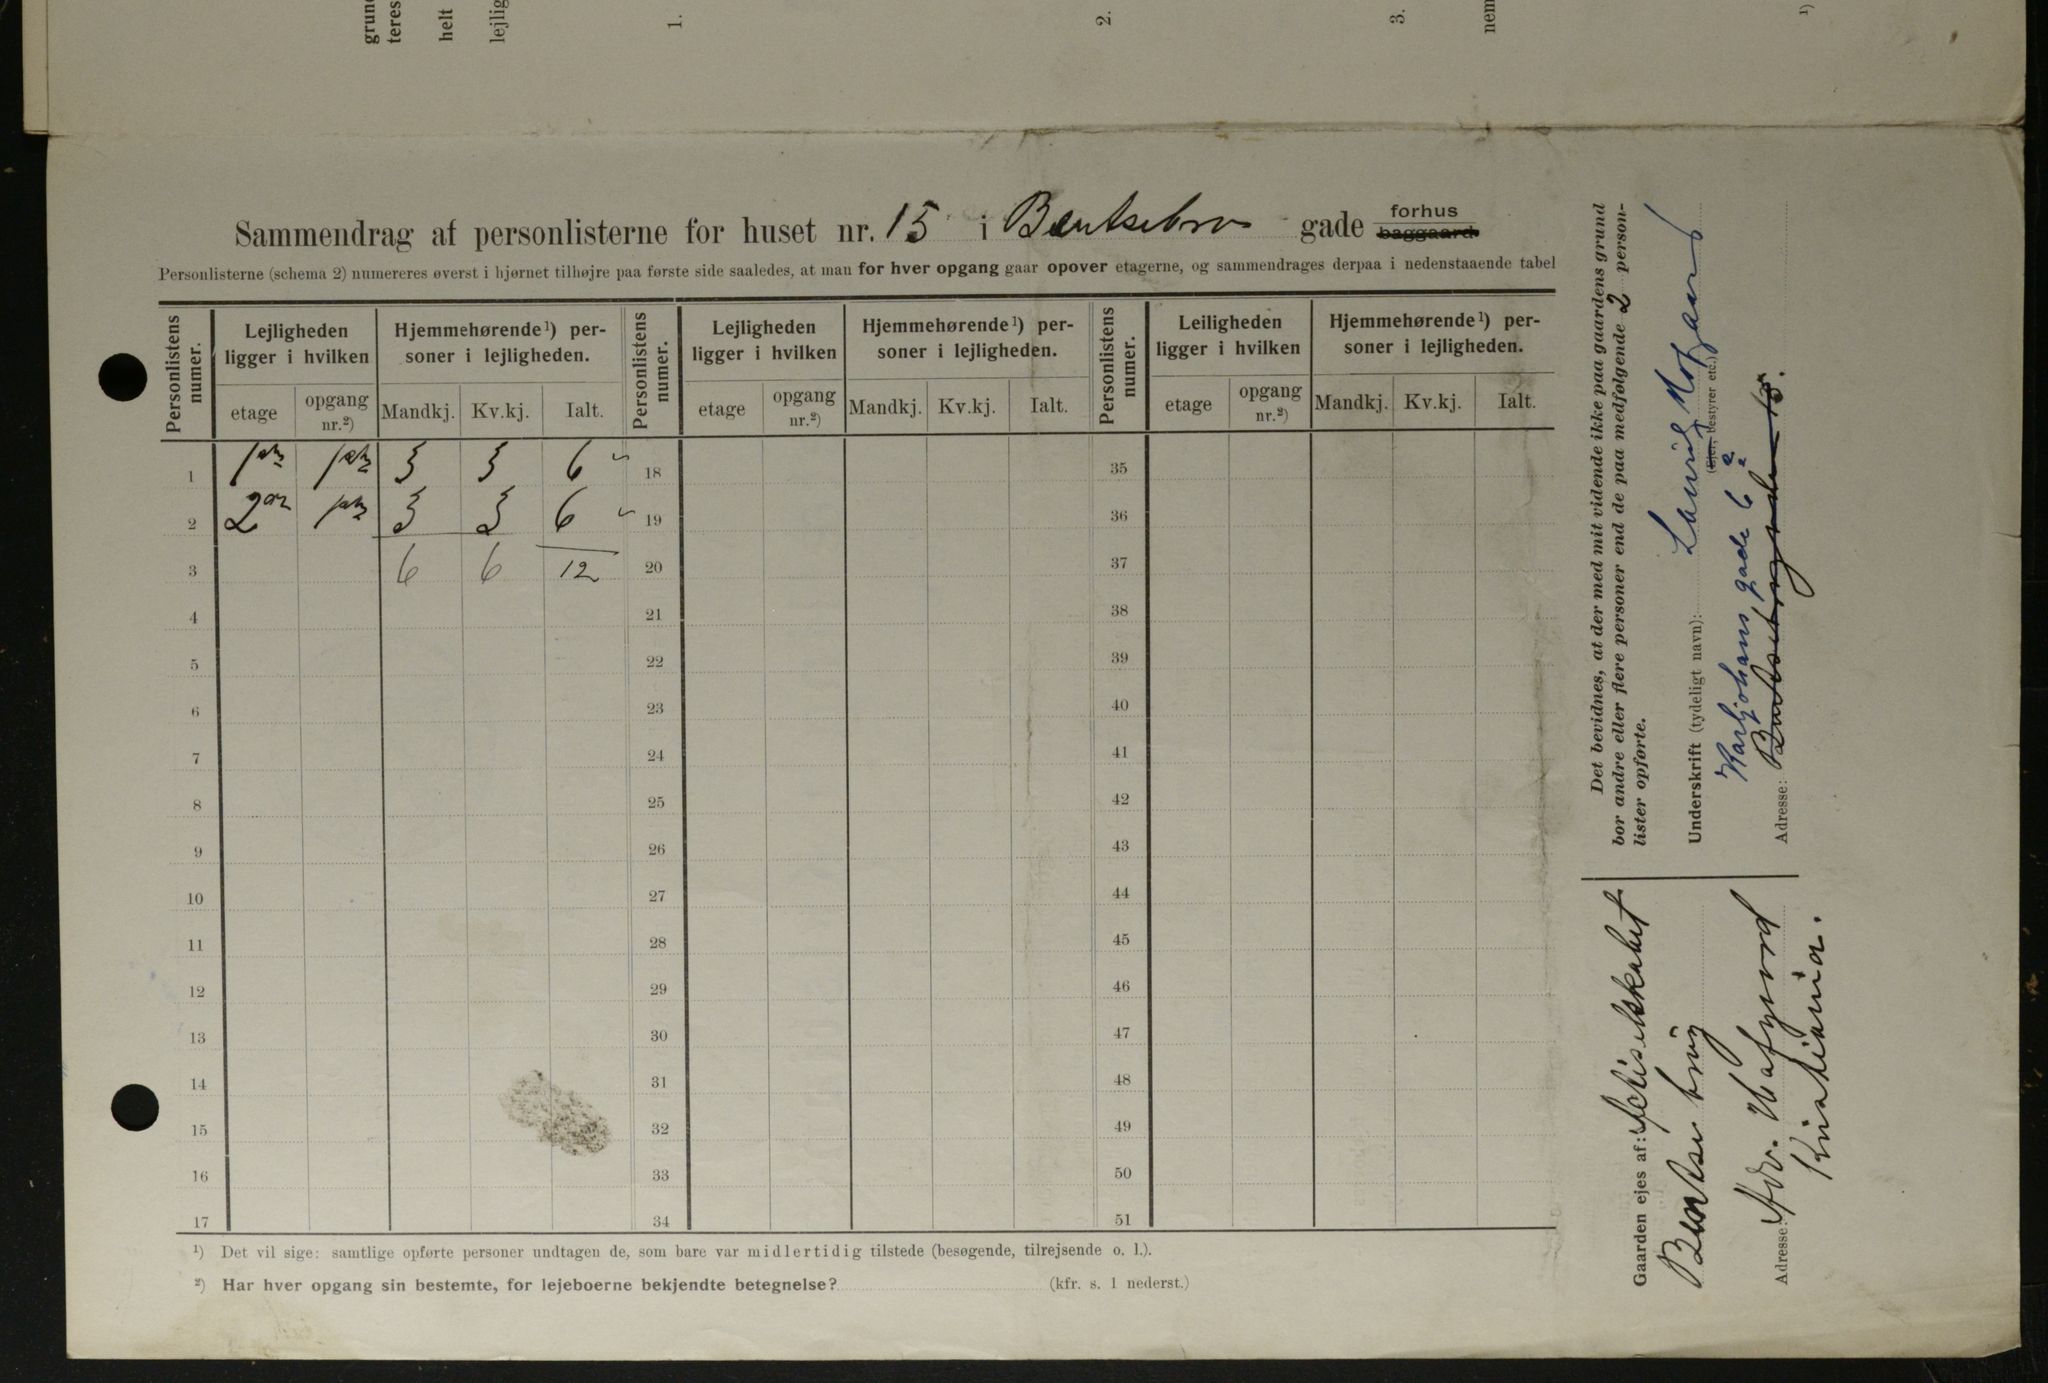 grun
teres
helt
lejlig
1.
2.
3.
nem
1)
Sammendrag af personlisterne for huset nr. 15 i Bentsebro gade forhus baggaard
Personlisterne (schema 2) numereres øverst i hjørnet tilhøjre paa første side saaledes, at man for hver opgang gaar opover etagerne, og sammendrages derpaa i nedenstaaende tabel
Personlistens numer. Lejligheden ligger i hvilken Hjemmehørende 1) personer i lejligheden. Personlistens numer. Lejligheden ligger i hvilken Hjemmehørende 1) personer i lejligheden. Personlistens numer. Leiligheden ligger i hvilken Hjemmehørende 1) personer i lejligheden.
etage opgang nr.2) Mandkj. Kv.kj. Ialt. etage opgang nr.2) Mandkj. Kv.kj. Ialt. etage opgang nr.2) Mandkj. Kv.kj. Ialt.
1 1ste 1ste 3 3 6 18 35
2 2den 1ste 3 3 6 19 36
3 6 6 12 20 37
4 21 38
5 22 39
6 23 40
7 24 41
8 25 42
9 26 43
10 27 44
11 28 45
12 29 46
13 30 47
14 31 48
15 32 49
16 33 50
17 34 51
1) Det vil sige: samtlige opførte personer undtagen de, som bare var midlertidig tilstede (besøgende, tilrejsende o. l.).
2) Har hver opgang sin bestemte, for lejeboerne bekjendte betegnelse? (kfr. s. 1 nederst.)
Det bevidnes, at der med mit vidende ikke paa gaardens grund
bor andre eller flere personer end de paa medfølgende 2 person-
lister opførte.
Underskrift (tydeligt navn): Lauritz
(Ejer, bestyrer etc.)
Karljohans gade 6
Adresse: Bentsebrogaden 15.
Gaarden ejes af: Aktieselskabet
Bentse brug
Adresse: Adv.
Kristiania.